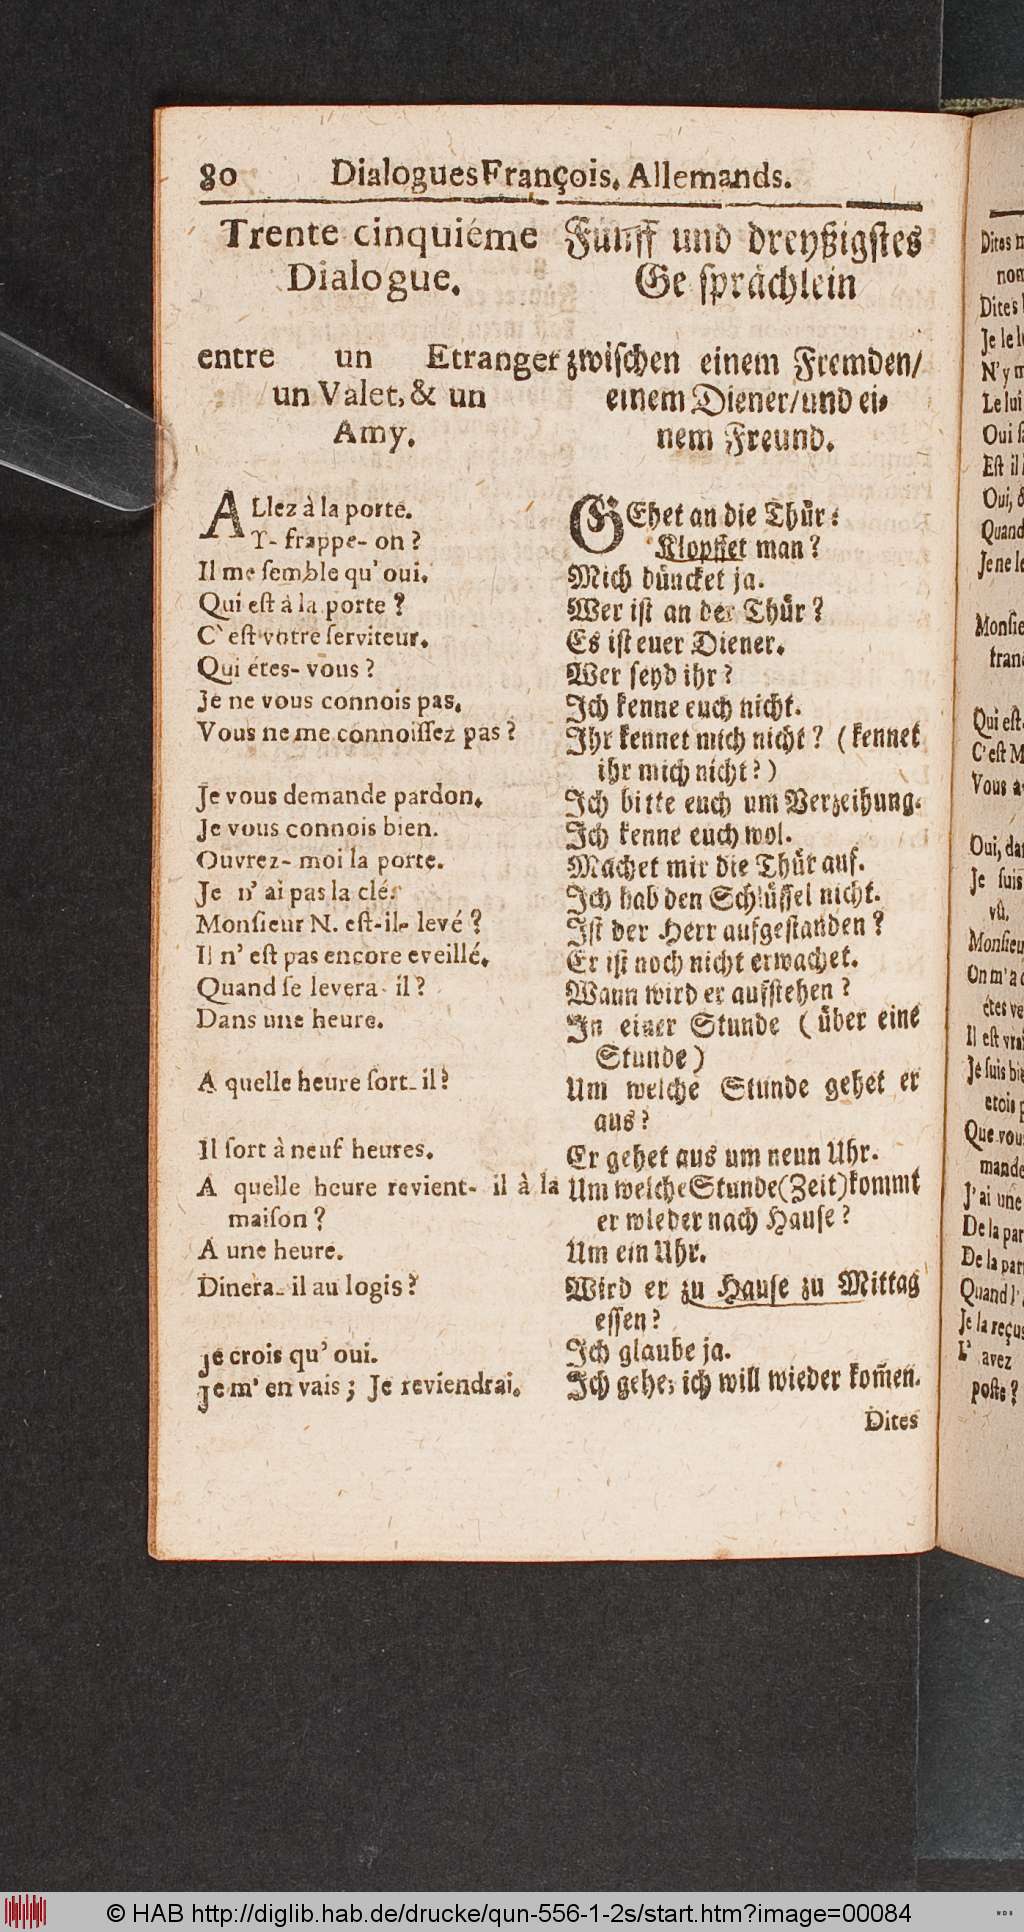 80 Dialogues François. Allemands.
Trente cinquiéme
Dialogue.
entre un Etranger
un Valet, & un
Amy.
ALlez à la porte.
Y- frappe- on?
Il me ſemble qu' oui.
Qui eſt à la porte?
C' eſt votre ſerviteur.
Qui étes- vous?
Je ne vous connois pas.
Vous ne me connoiſſez pas?
Je vous demande pardon.
Je vous connois bien.
Ouvrez- moi la porte.
Je n' ai pas la clé.
Monſieur N. eſt-il- levé?
Il n' eſt pas encore eveillé.
Quand ſe levera- il?
Dans une heure.
A quelle heure ſort- il?
Il ſort à neuf heures.
A quelle heure revient- il à la
maiſon?
A une heure.
Dinera- il au logis?
Je crois qu' oui.
Je m' en vais; Je reviendrai.
Fünff und dreyßigſtes
Ge ſprächlein
zwiſchen einem Fremden/
einem Diener/und ei-
nem Freund.
GEhet an die Thür:
Klopffet man?
Mich düncket ja.
Wer iſt an der Thür?
Es iſt euer Diener.
Wer ſeyd ihr?
Ich kenne euch nicht.
Ihr kennet mich nicht? (kennet
ihr mich nicht?)
Ich bitte euch um Verzeihung.
Ich kenne euch wol.
Machet mir die Thür auf.
Ich hab den Schlüſſel nicht.
Iſt der Herr aufgeſtanden?
Er iſt noch nicht erwachet.
Wann wird er aufſtehen?
In einer Stunde (über eine
Stunde)
Um welche Stunde gehet er
aus?
Er gehet aus um neun Uhr.
Um welche Stunde(Zeit)kommt
er wieder nach Hauſe?
Um ein Uhr.
Wird er zu Hauſe zu Mittag
eſſen?
Ich glaube ja.
Ich gehe; ich will wieder kom̃en.
Dites
© HAB http://diglib.hab.de/drucke/qun-556-1-2s/start.htm?image=00084